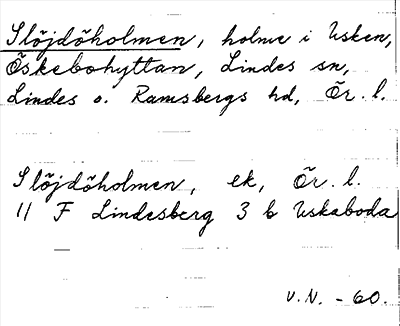 Slöjdöholmen, holme i Usken,
Öskebohyttan, Lindes sn,
Lindes o. Ramsbergs hd, Ör. l.
Slöjdöholmen, ek, Ör. l.
11 F Lindesberg 3 b Uskaboda
V.N. - 60.